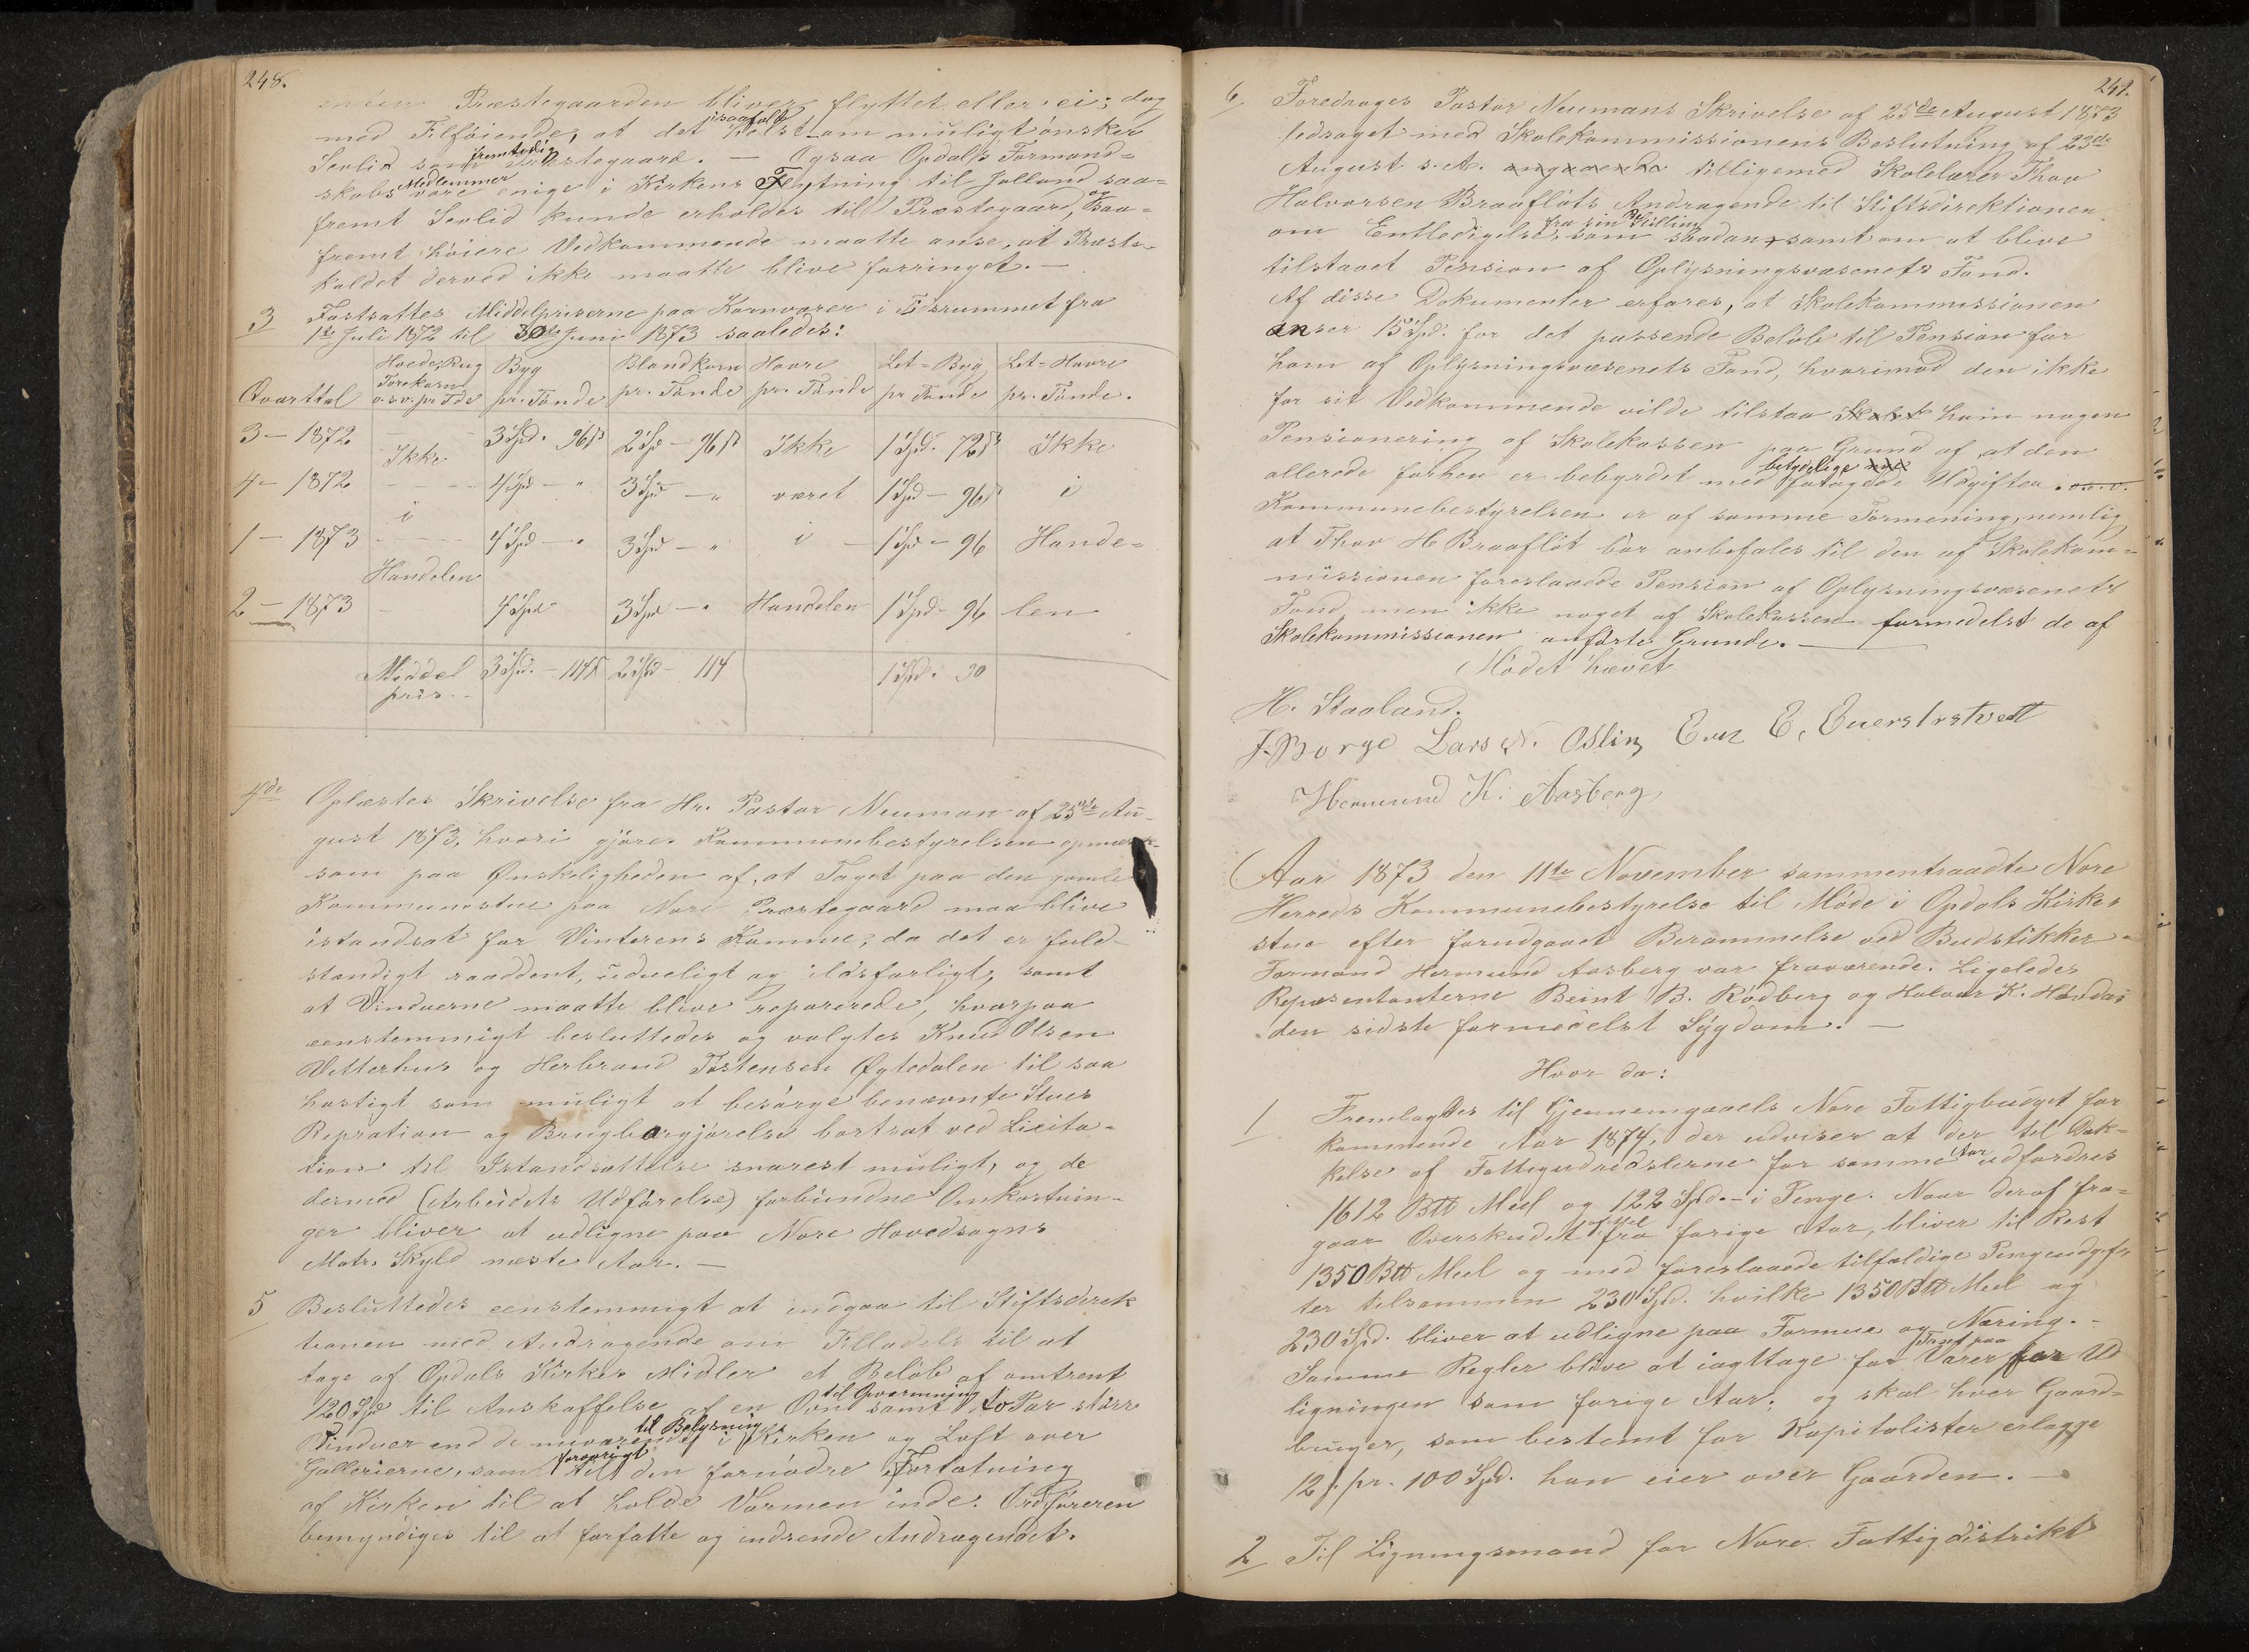 248.
enten Præstegaarden bliver flyttet eller ei; dog
med Tilføiende, at det isaafald helst om muligt ønsker
Sevlid som fremtidig Præstegaard. — Ogsaa Opdals Formand=
skabs Medlemmer vare enige i Kirkens Flytning til Jolland saa=
fremt Sevlid kunde erholdes til Præstegaard, og saa=
fremt høiere Vedkommende maatte anse, at Præste=
kaldet derved ikke maatte blive forringet. —
3 Fastsattes Middelpriserne paa Kornvarer i Tidsrummet fra
1ste Juli 1872 til 30te Juni 1873 saaledes:
Qvarttal | Hvede, Rug Torekorn o.s.v. pr Tde | Byg pr. Tønde | Blandkorn pr. Tønde | Havre pr. Tønde | Let-Byg pr Tønde | Let-Havre pr. Tønde.
3 – 1872 | Ikke | 3 Spd. 96 ß | 2 Sp – 96 ß | Ikke | 1 Spd. 72 ß | Ikke
4 – 1872 | i | 4 Spd – „ | 3 Spd – „ | været | 1 Spd – 96 ß | i
1 – 1873 | 4 Spd – „ | 3 Spd – „ | i | 1 Spd – 96 | Hande=
2 – 1873 | Handelen | 4 Spd | 3 Spd – „ | Handelen | 1 Spd – 96 | len
Middel pris. | 3 Spd. – 114 ß | 2 Spd – 114 | 1 Spd. 30
4de Oplæstes Skrivelse fra Hr. Pastor Neuman af 25de Au=
gust 1873, hvori gjøres Kommunebestyrelsen opmærk=
som paa Ønskeligheden af, at Taget paa den gamle
Kommunestue paa Nore Præstegaard maa blive
istandsat før Vinterens Komme; da det er fuld=
stændigt raaddent, udueligt og ildsfarligt, samt
at Vinduerne maatte blive reparerede, hvorpaa
eenstemmigt besluttedes og valgtes Knud Olsen
Vetterhus og Herbrand Tostensen Øgtedalen til saa
hastigt som muligt at besørge benævnte Stues
Repration og Brugbargjørelse bortsat ved Licita=
tion til Istandsættelse snarest muligt, og de
dermed (Arbeidets Udførelse) forbundne Omkostnin=
ger bliver at udligne paa Nore Hovedsogns
Matr. Skyld næste Aar. —
5 Besluttedes eenstemmigt at indgaa til Stiftsdirek
tionen med Andragende om Tilladelse til at
tage af Opdals Kirkes Midler et Beløb af omtrent
120 Spd til Anskaffelse af en Ovn til Opvarmning samt to Par større
Vinduer end de nuværende til Belysning i Kirken og Loft over
Gallerierne, samt forøvrigt til den fornødne Fortætning
af Kirken til at holde Varmen inde. Ordføreren
bemyndiges til at forfatte og indsende Andragendet.
249.
6 Foredroges Pastor Neumans Skrivelse af 25de August 1873
ledsaget med Skolekommissionens Beslutning af 23de
August s. A. angaaende tilligemed Skolelærer Thor
Halvorsen Braafløts Andragende til Stiftsdirektionen
om Entledigelse fra sin Stilling som saadan, samt om at blive
tilstaaet Pension af Oplysningsvæsenets Fond.
Af disse Dokumenter erfares, at Skolekommissionen
anser 15 Spd. for det passende Beløb til Pension for
ham af Oplysningsvæsenets Fond, hvorimod den ikke
for sit Vedkommende vilde tilstaa ham nogen
Pensionering af Skolekassen paa Grund af at den
allerede forhen er bebyrdet med betydelige forøgede Udgifter. o.s.v.
Kommunebestyrelsen er af samme Formening, nemlig
at Thor H Braafløt bør anbefales til den af Skolekom=
missionen foreslaaede Pension af Oplysningsvæsenets
Fond, men ikke noget af Skolekassen formedelst de af
Skolekommissionen anførte Grunde. —
Mødet hævet
H. Staaland.
J. Borge Lars N. Oslin, E. Everstrstvedt
Hermund K. Aasberg
Aar 1873 den 11te November sammentraadte Nore
Herreds Kommunebestyrelse til Møde i Opdals Kirke=
stue efter forudgaaet Berammelse ved Budstikker.
Formand Hermund Aasberg var fraværende. Ligeledes
Repæsentanterne Beint B. Rødberg og Halvor K.
den sidste formedelst Sygdom. —
Hvor da:
1 Fremlagdes til Gjennemgaaels Nore Fattigbudget for
kommende Aar 1874, der udviser at der til Dæk=
kelse af Fattigudredslerne for samme Aar udfordres
1612 Btt Meel og 122 Spd. – i Penge. Naar deraf fra=
gaar Overskudet af Meel fra forige Aar, bliver til Rest
1350 Btt Meel og med foreslaaede tilfældige Pengeudgif=
ter tilsammen 230 Spd. hvilke 1350 Btt Meel og
230 Spd. bliver at udligne paa Formue og Næring. –
Samme Regler blive at iagttage for Taxt paa Varer for Ud
ligningen som forige Aar; og skal hver Gaard=
bruger, som bestemt for Kapitalister erlægge
12 ß. pr. 100 Spd. han eier over Gaarden. —
2 Til Ligningsmænd for Nore Fattigdistrikt